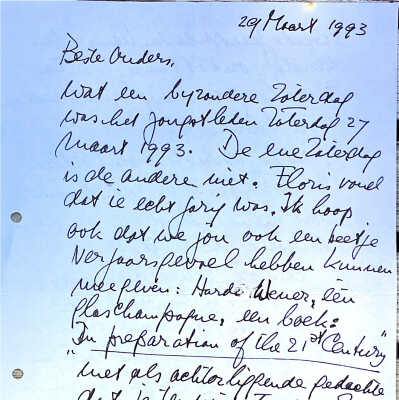 29 Maart 1993
Beste Ouders,
Wat een byzondere Zaterdag
was het jongstleden Zaterdag 27
Maart 1993. De ene Zaterdag
is de andere niet. Floris vond
dat ie echt jarig was. Ik hoop
ook dat we jou ook een beetje
Verjaarsgevoel hebben kunnen
meegeven: Harde Wener, één
glas champagne, een boek:
"In preparation of the 21st Century"
met als achterliggende gedachte
dat